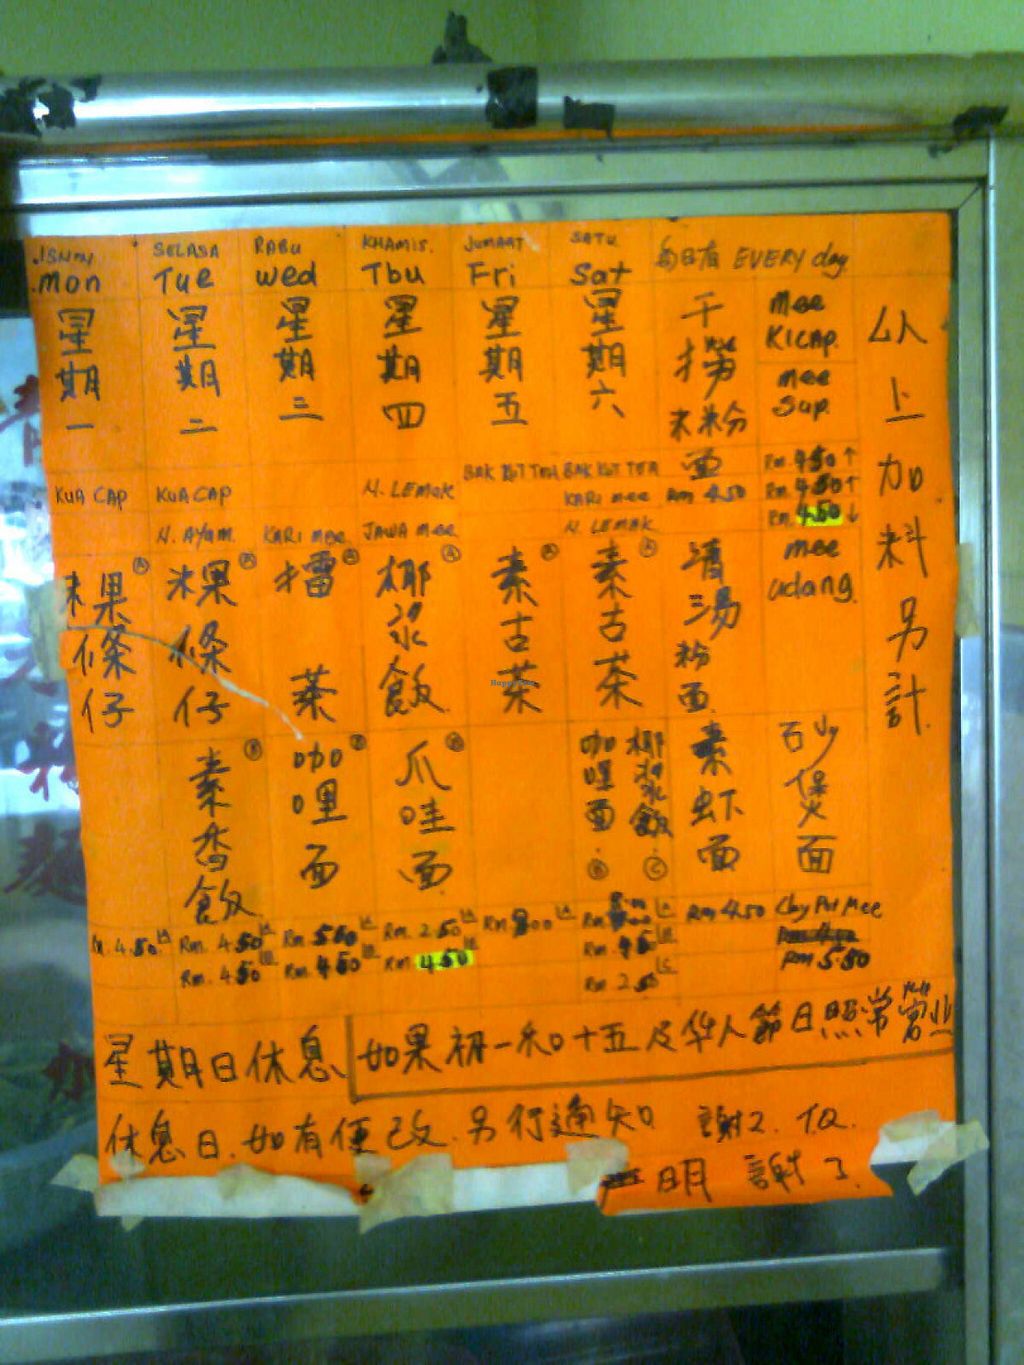 ISNIN SELASA RABU KHAMIS. JUMAAT SATU
mon Tue wed Thu Fri Sat 每日有 EVERY day
星期一 星期二 星期三 星期四 星期五 星期六
干撈米粉面
Mee KICAP.
Mee Sup.
以上加料另計.
KUA CAP KUA CAP N. LEMAK BAK KUT TEA BAK KUT TEA
KARI mee Rm 4.50
N. AYAM. KARI mee JAWA mee N. LEMAK
Rm. 4.50 ↑
Rm. 4.50 ↑
Rm. 4.50 ↓
mee udang.
粿條仔 Ⓐ
粿條仔 Ⓐ
擂茶 Ⓐ
椰漿飯 Ⓐ
素古茶 Ⓐ
素古茶 Ⓐ
清湯粉面
素香飯 Ⓑ
咖哩面 Ⓑ
爪哇面 Ⓑ
咖哩面 Ⓑ
椰漿飯 Ⓒ
素虾面
砂煲面
Rm. 4.50 A Rm. 4.50 A Rm. 5.00 A Rm. 2.50 A Rm. 8.00 A Rm. 8.00 A Rm 4.50 Clay Pot Mee
Rm. 4.50 B Rm. 4.50 B Rm. 4.50 Rm. 4.50 B
Rm. 2.50 C Rm 5.50
星期日休息 如果初一和十五及华人節日照常营业
休息日.如有便改.另行通知 謝2. T.Q.
明 謝了.
HappyCow